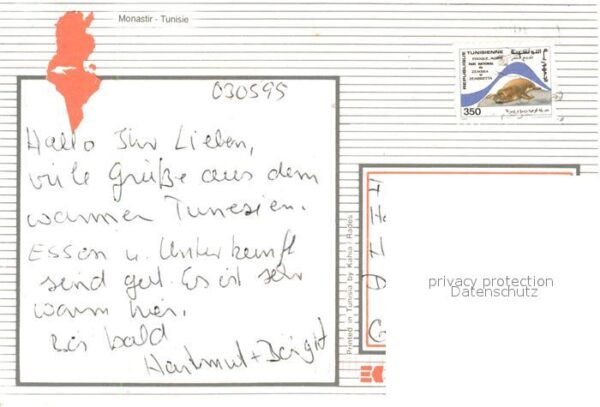 Monastir - Tunisie
030595
Hallo Ihr Lieben,
viele Grüße aus dem
warmen Tunesien.
Essen u. Unterkunft
sind gut. Es ist sehr
warm hier.
Bis bald
Hartmut + Birgit
REPUBLIQUE TUNISIENNE
PHOQUE MOINE
PARC NATIONAL
de
ZEMBRA
et
ZEMBRETTA
350
Printed in Tunisia by Kahia / Rades
privacy protection
Datenschutz